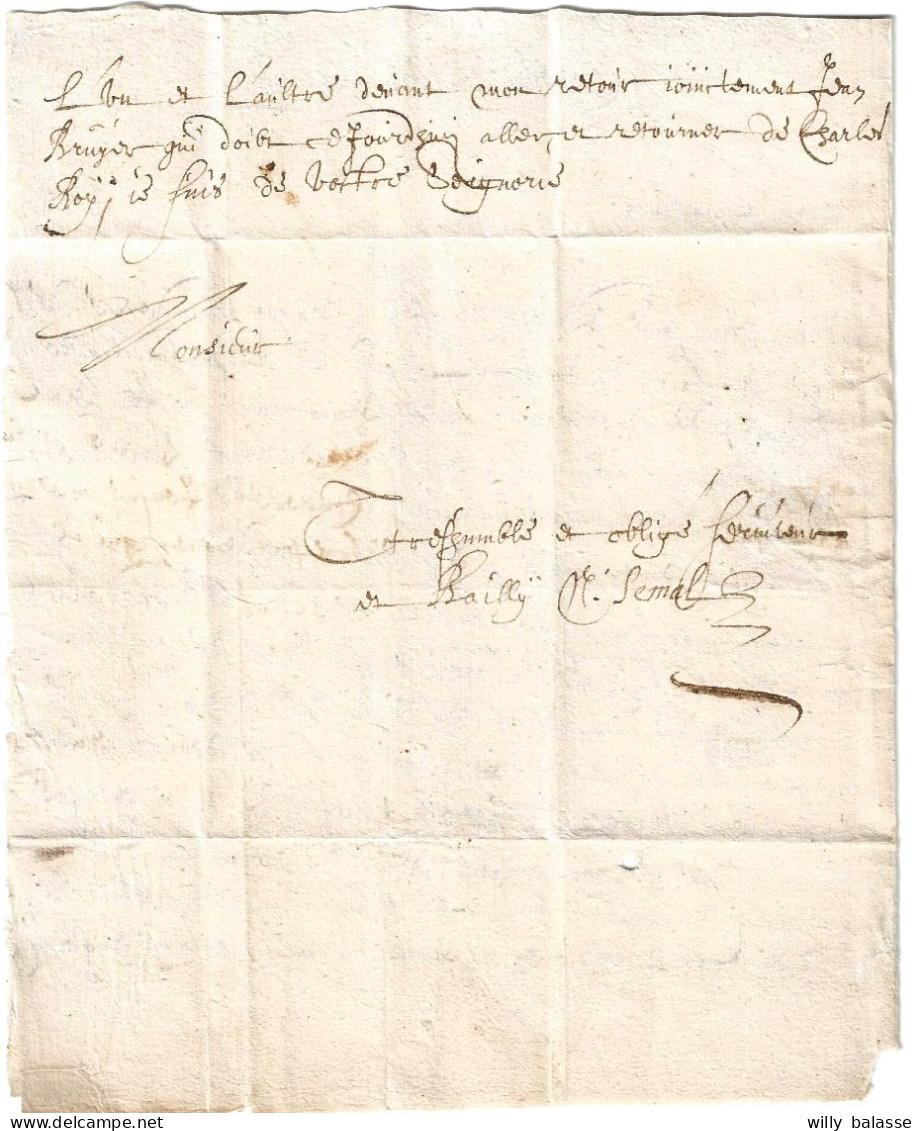 L'vn et l'aultre deuant mon retour ioinctement Jean
Bruyer qui doibt ce Jourdhuy aller et retourner de Charles
Roy, ie suis de vostre Seignorie
Monsieur
Treshumble et obligé seruiteur
et Bailly N. Semal
willy balasse